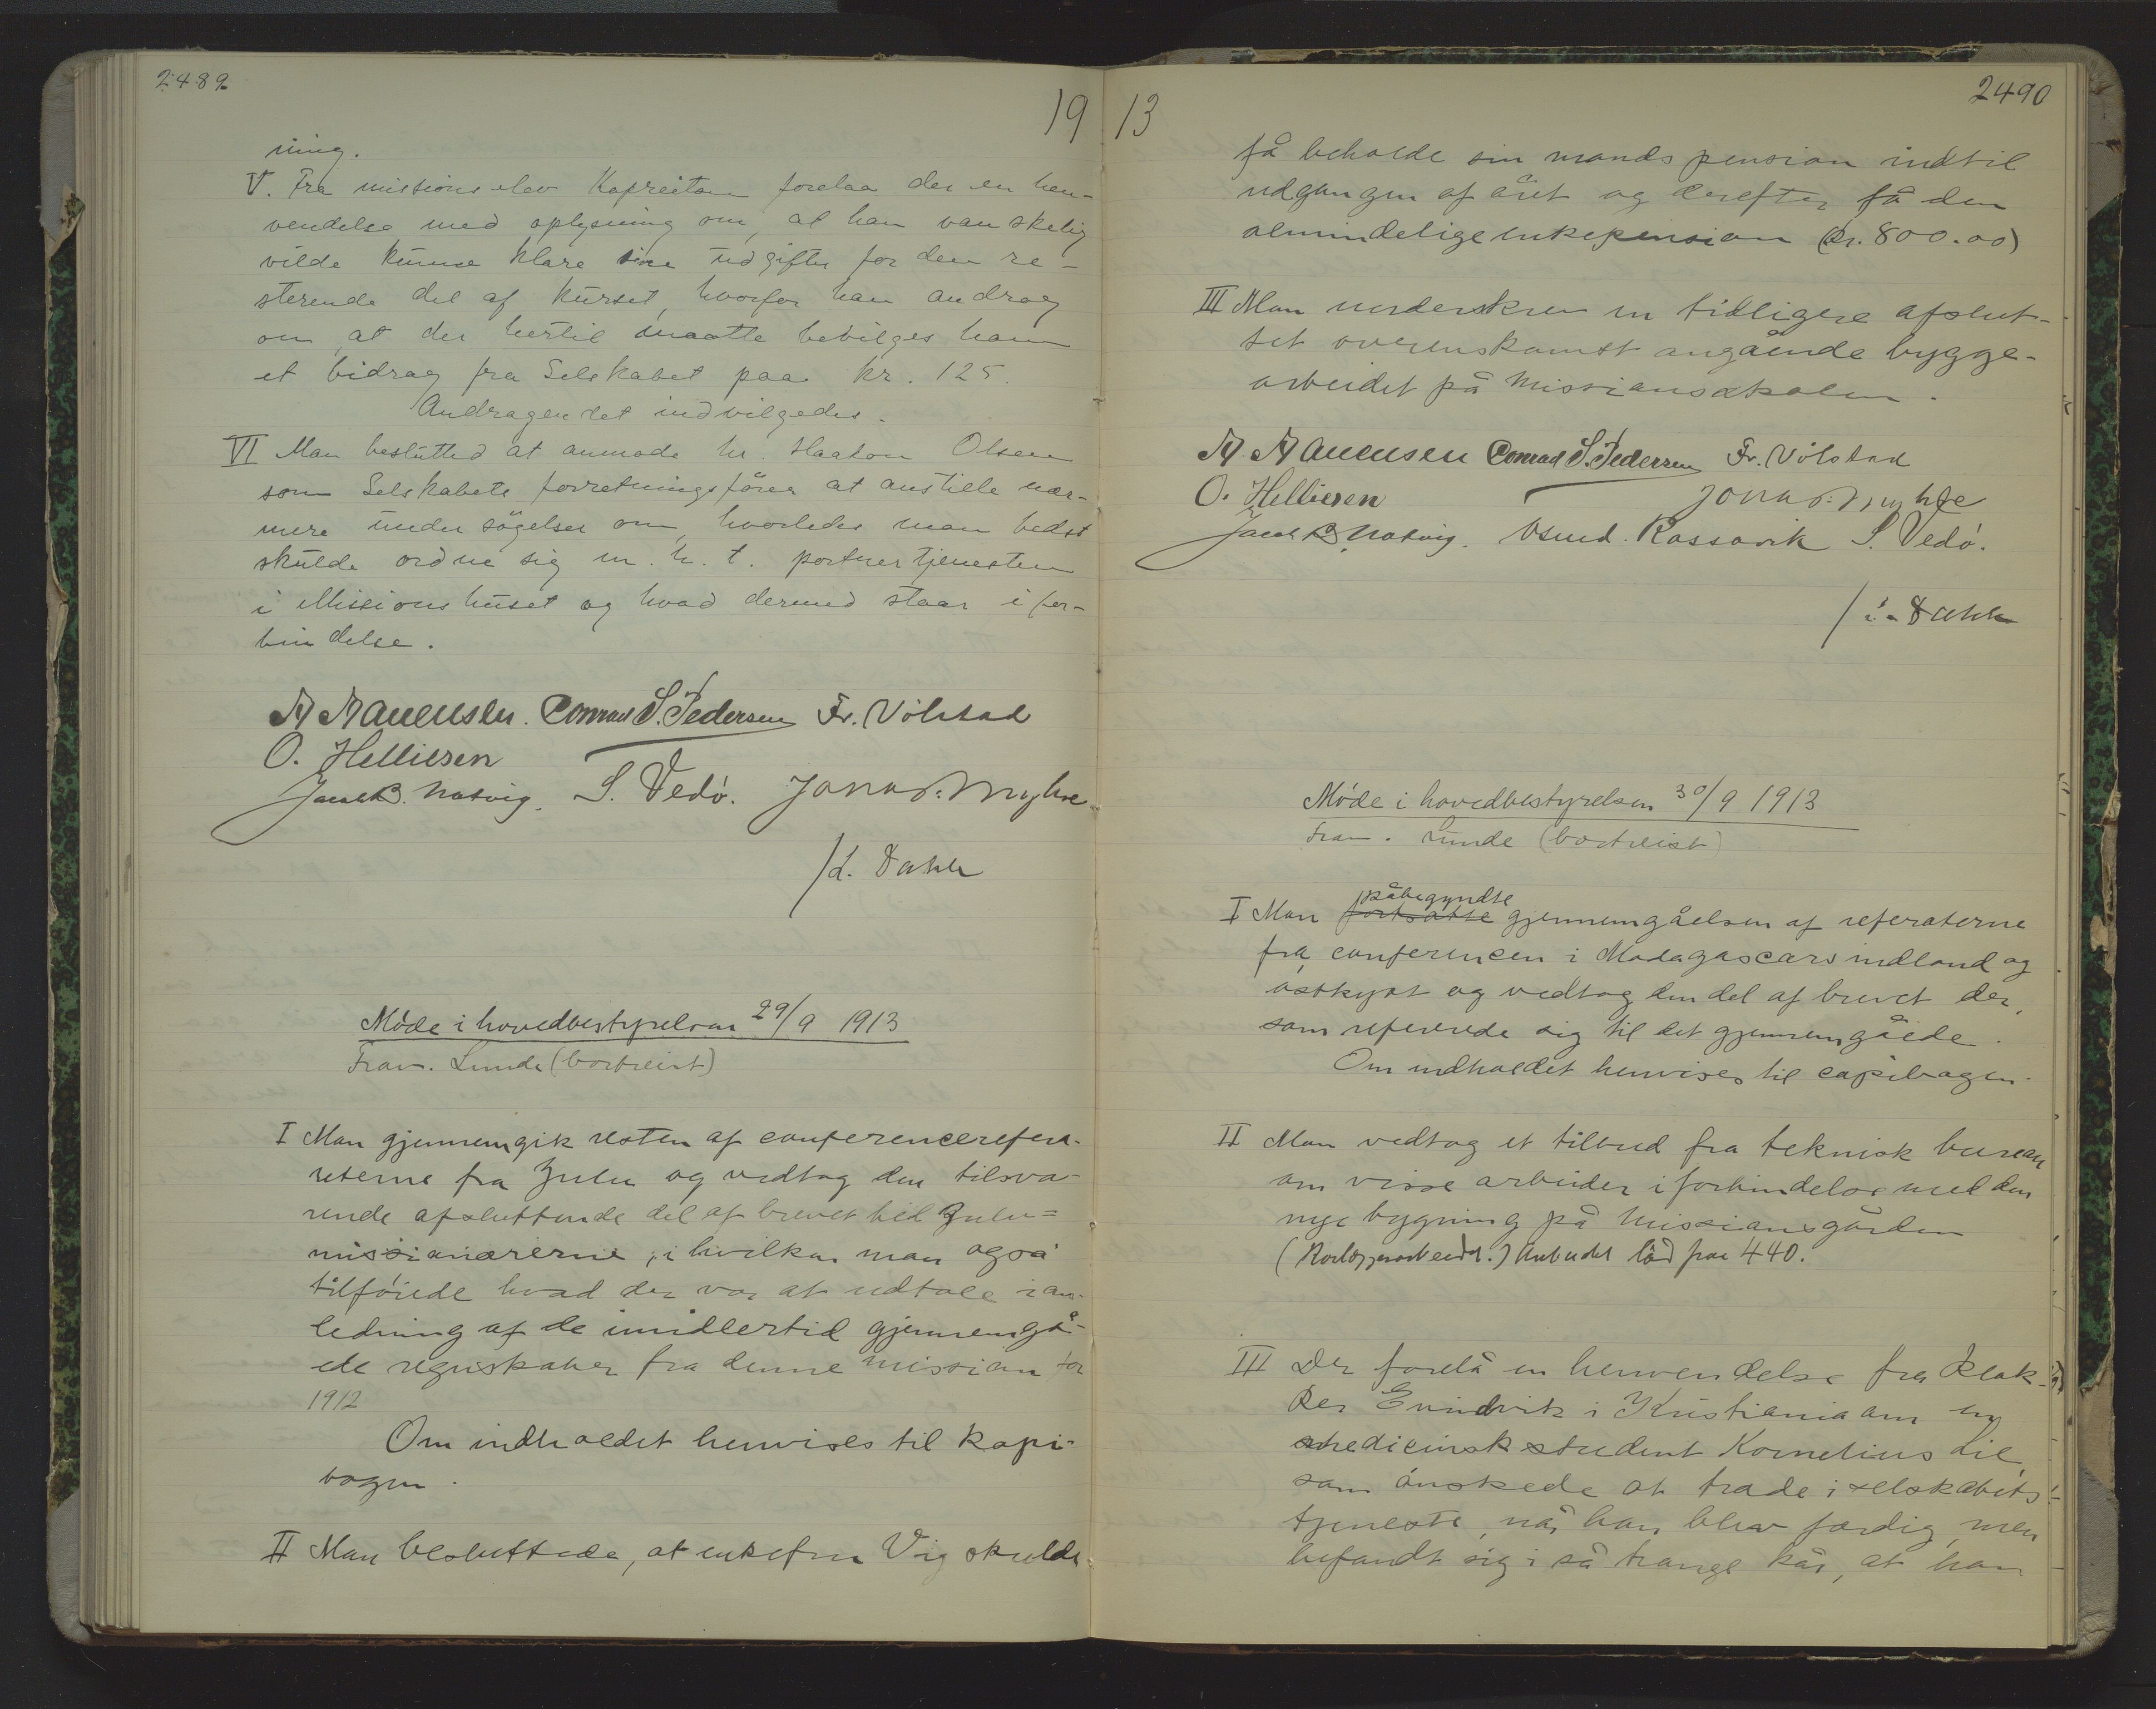 2489
19
ning.
V. Fra missionselev Kapreitan forelaa der en hen-
vendelse med oplysning om, at han vanskelig
vilde kunne klare sine udgifter for den re-
sterende del af kurset, hvorfor han androg
om at der hertil maatte bevilges ham
et bidrag fra Selskabet paa kr. 125.
Andragendet indvilgedes.
VI Man beslutted at anmode hr. Haakon Olsen
som Selskabets forretningsfører at anstille nær-
mere undersøgelser om, hvorledes man bedst
skulde ordne sig m. h. t. portnertjenesten
i Missionshuset og hvad dermed staar i for-
bindelse.
A Aanensen. Conrad S. Pedersen Fr. Völstad
O. Helliesen
Jacob B. Natvig. S. Vedö. Jonas. Myhre
/L. Dahle
Möde i hovedbestyrelsen 29/9 1913
Frav. Lunde (bortreist)
I Man gjennemgik resten af conferencerefera-
terne fra Zulu og vedtog den tilsva-
rende afsluttende del af brevet til Zulu=
missionærerne, i hvilken man også
tilföiede hvad der var at udtale i an-
ledning af de imidlertid gjennemgå-
ede regnskaber fra denne mission for
1912
Om indholdet henvises til kopi-
bogen.
II Man besluttede, at enkefru Vig skulde
13
2490
få beholde sin mands pension indtil
udgangen af året og derefter få den
almindelige enkepension (kr. 800.00)
III Man underskrev en tidligere afslut-
tet overenskomst angående bygge-
arbeidet på Missionsskolen.
A Aanensen Conrad S. Pedersen Fr. Völstad
O. Helliesen Jonas. Myhre
Jacob B. Natvig. Osmd. Rassavik S. Vedö.
/L. Dahle
Möde i hovedbestyrelsen 30/9 1913
Frav. Lunde (bortreist)
påbegyndte
I Man fortsatte gjennemgåelsen af referaterne
fra conferencen i Madagascars indland og
östkyst og vedtog den del af brevet der,
som refererede sig til det gjennemgåede.
Om indholdet henvises til copibogen.
II Man vedtog et tilbud fra teknisk bureau
om visse arbeider i forbindelse med den
nye bygning på Missionsgården
(Rørlæggerarbeidet.) Anbudet lød paa 440.
III Der forelå en henvendelse fra Klok-
ker Evindvik i Kristiania om en
medicinsk student Kornelius Lie,
som önskede at træde i selskabets
tjeneste, når han blev færdig, men
befandt sig i så trange kår, at han